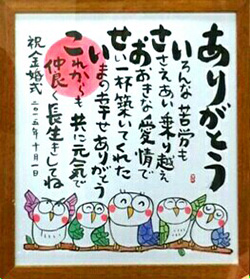 ありがとう
いろんな苦労も
ささえあい乗り越え
おおきな愛情で
せい一杯築いてくれた
いまの幸せありがとう
これからも共に元気で
仲良く長生きしてね
祝金婚式 二〇一五年十月一日